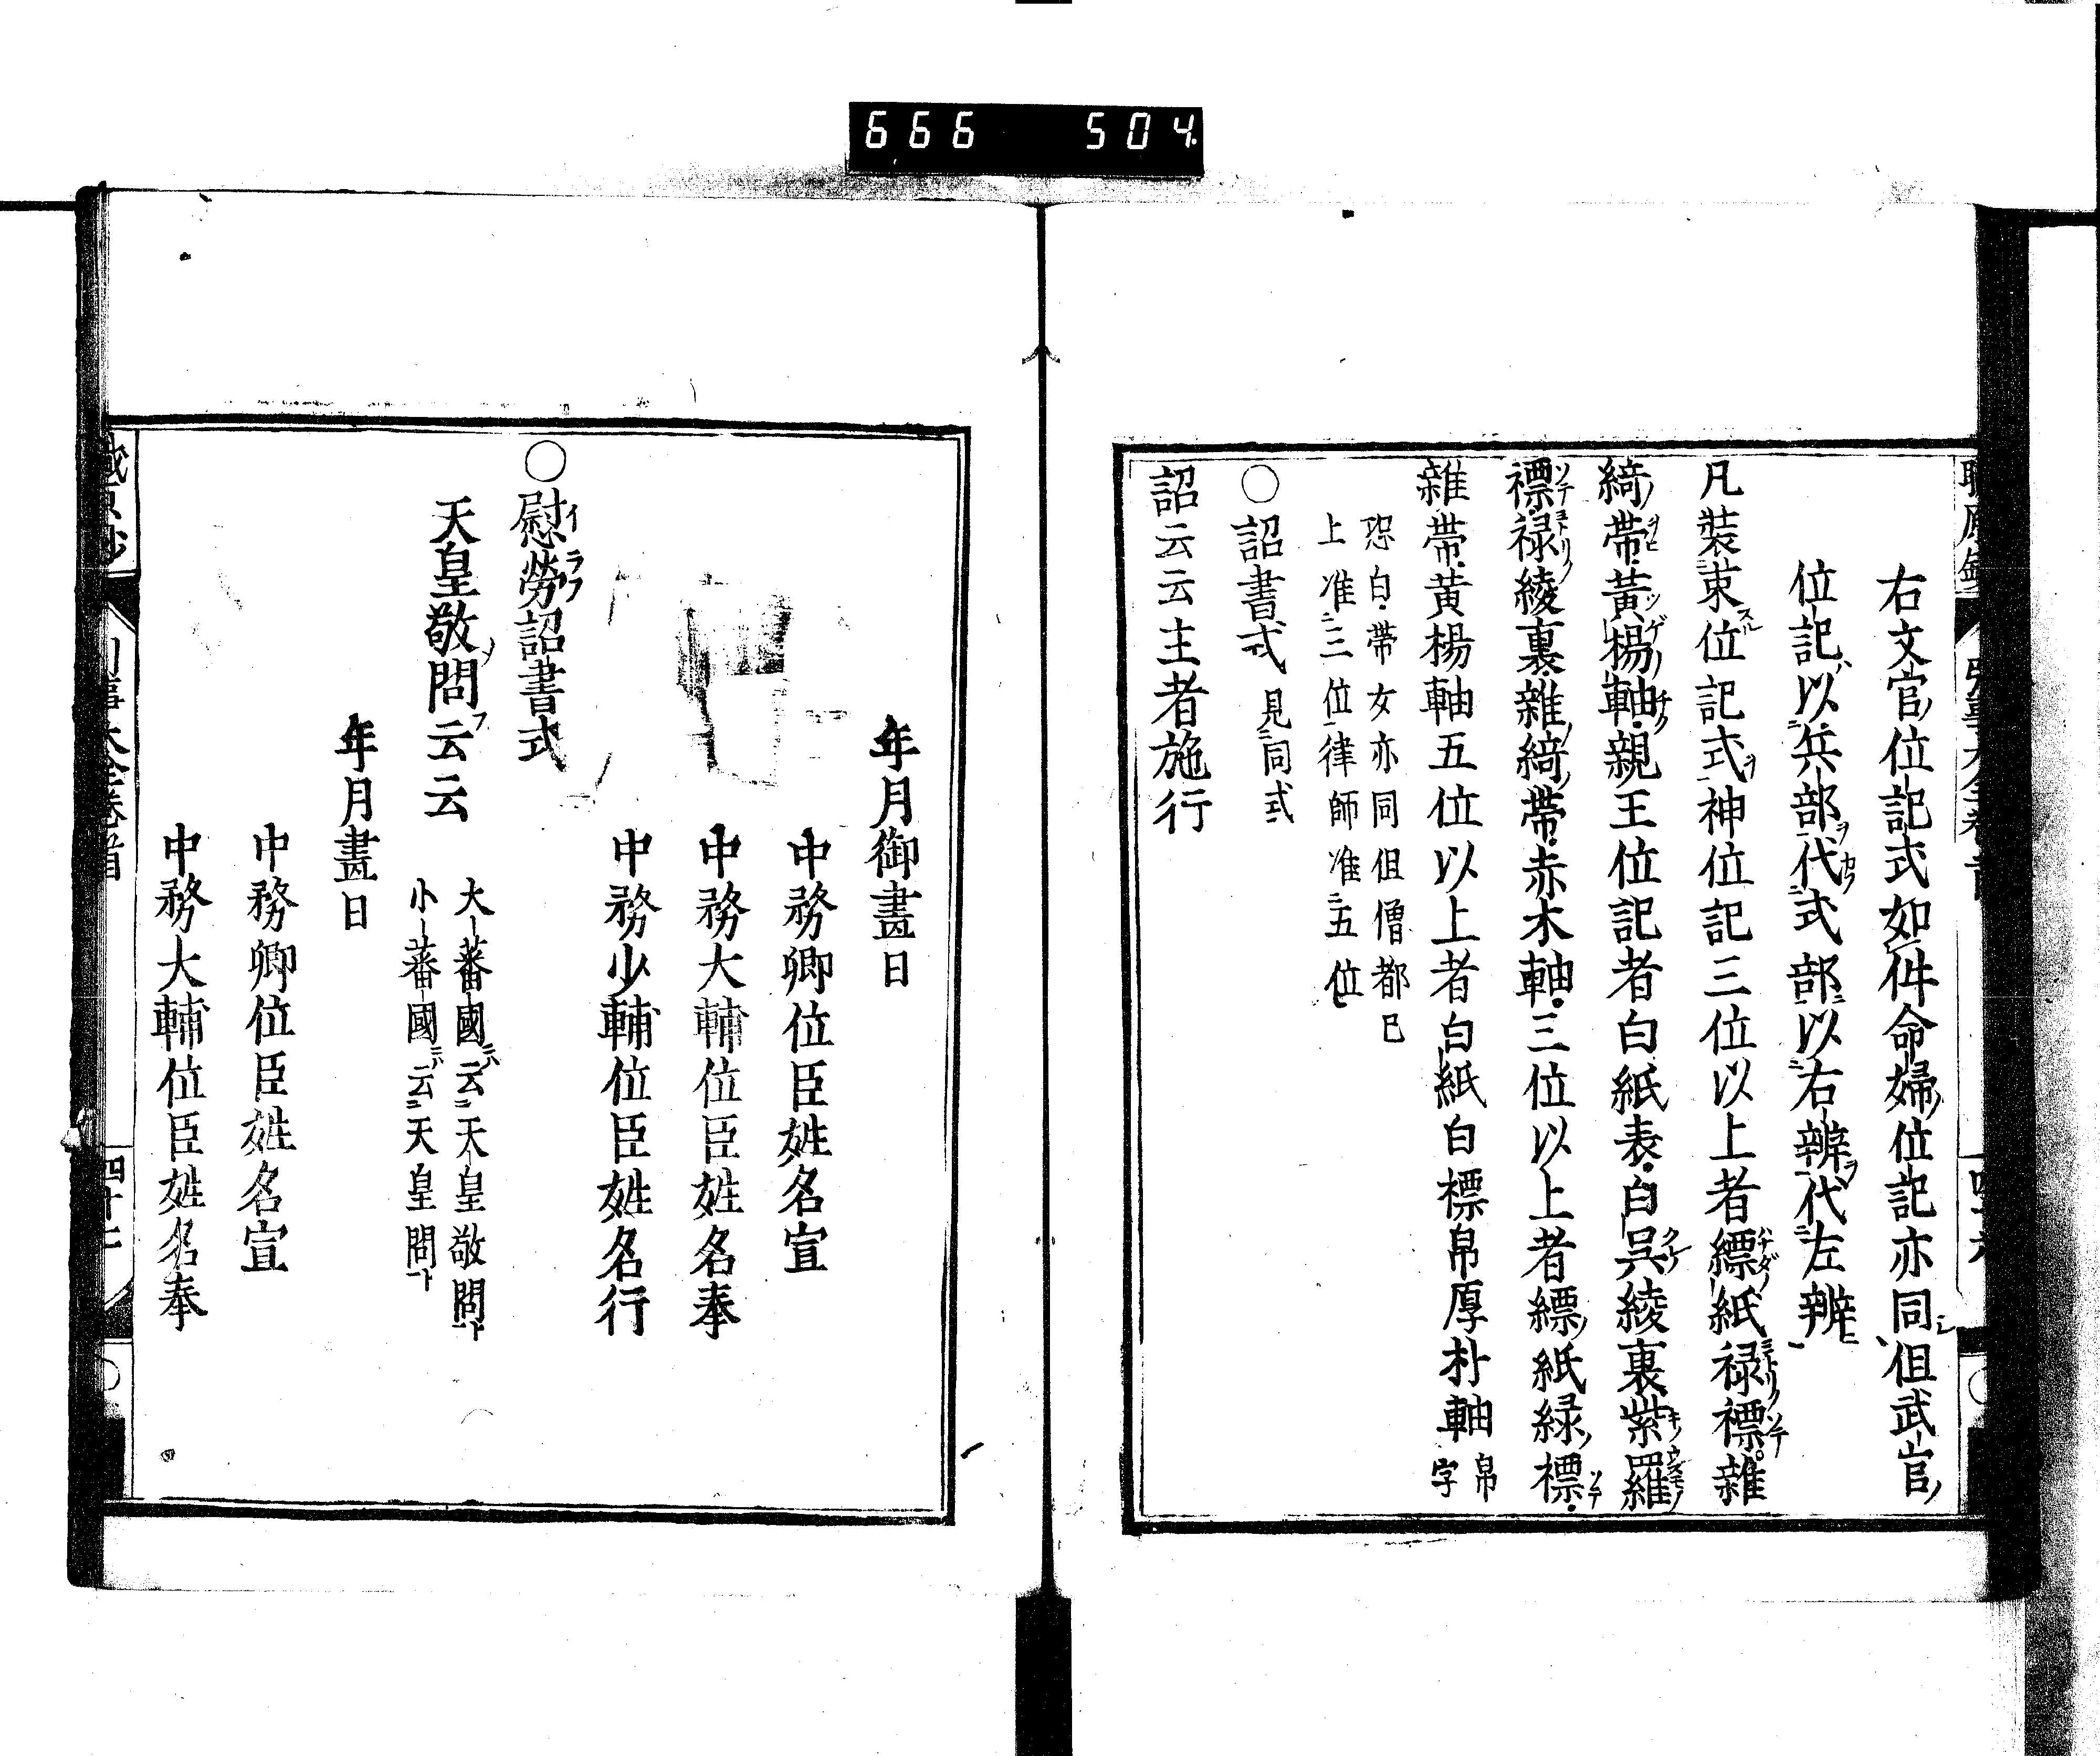 666 504
右文官位記式如件命婦位記亦同但武官
位記以兵部代式部以右辨代左辨
凡裝束位記式神位記三位以上者縹紙禄褾雜
綺帶黃楊軸親王位記者白紙表白呉綾裏紫羅
褾禄綾裏雜綺帶赤木軸三位以上者縹紙緑褾
雜帶黃楊軸五位以上者白紙白褾帛厚朴軸 帛字
恐白帶女亦同但僧都已
上准三位律師准五位
○詔書式 見同式
詔云云主者施行
年月御畫日
中務卿位臣姓名宣
中務大輔位臣姓名奉
中務少輔位臣姓名行
○慰勞詔書式
天皇敬問云云 大蕃國云天皇敬問
小蕃國云天皇問
年月畫日
中務卿位臣姓名宣
中務大輔位臣姓名奉